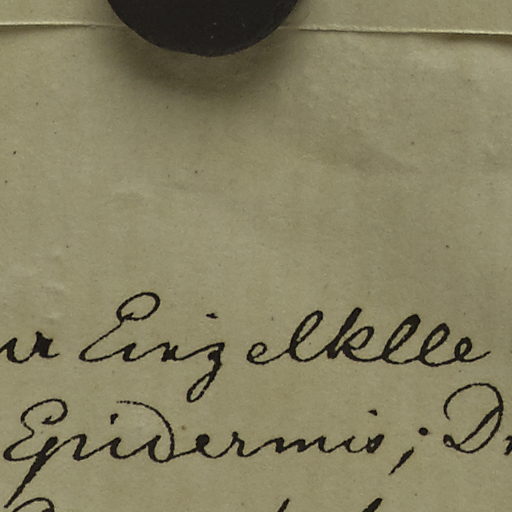 ur Einzelklle
Epidermis; Dr